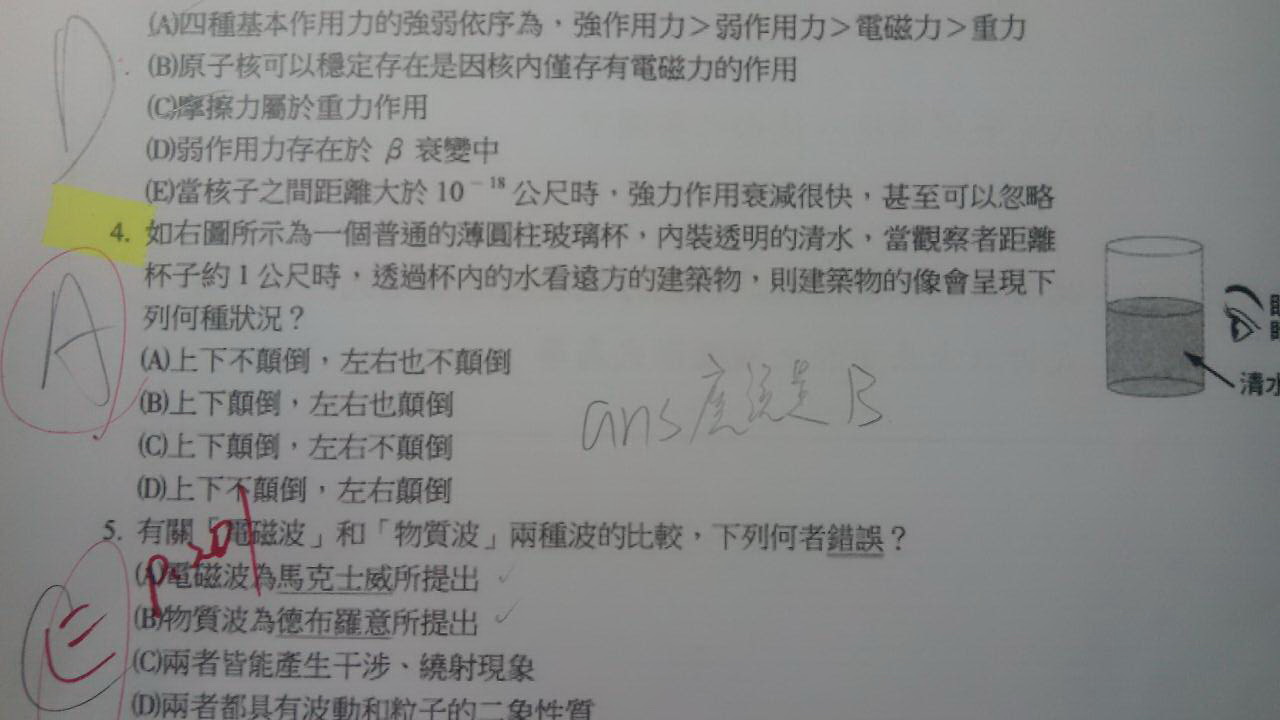 (A)四種基本作用力的強弱依序為，強作用力＞弱作用力＞電磁力＞重力
(B)原子核可以穩定存在是因核內僅存有電磁力的作用
(C)摩擦力屬於重力作用
(D)弱作用力存在於 β 衰變中
(E)當核子之間距離大於 10⁻¹⁸ 公尺時，強力作用衰減很快，甚至可以忽略
D
4. 如右圖所示為一個普通的薄圓柱玻璃杯，內裝透明的清水，當觀察者距離
杯子約 1 公尺時，透過杯內的水看遠方的建築物，則建築物的像會呈現下
列何種狀況？
(A)上下不顛倒，左右也不顛倒
(B)上下顛倒，左右也顛倒
(C)上下顛倒，左右不顛倒
(D)上下不顛倒，左右顛倒
A
ans 應該是 B
清水
5. 有關「電磁波」和「物質波」兩種波的比較，下列何者錯誤？
(A)電磁波為馬克士威所提出
(B)物質波為德布羅意所提出
(C)兩者皆能產生干涉、繞射現象
(D)兩者都具有波動和粒子的二象性質
E